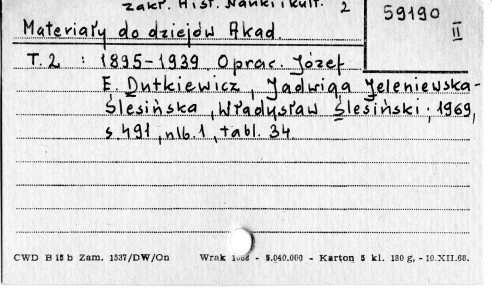 zakr. Hist. Nauki i Kult. 2
59190
II
Materiały do dziejów Akad.
T. 2 : 1895-1939 Oprac. Józef
E. Dutkiewicz, Jadwiga Jeleniewska-
Ślesińska, Władysław Ślesiński. 1969,
s. 491, nlb. 1, tabl. 34.
CWD B 15 b Zam. 1537/DW/On Wrak - 5.040.000 - Karton 5 kl. 180 g, - 10.XII.68.